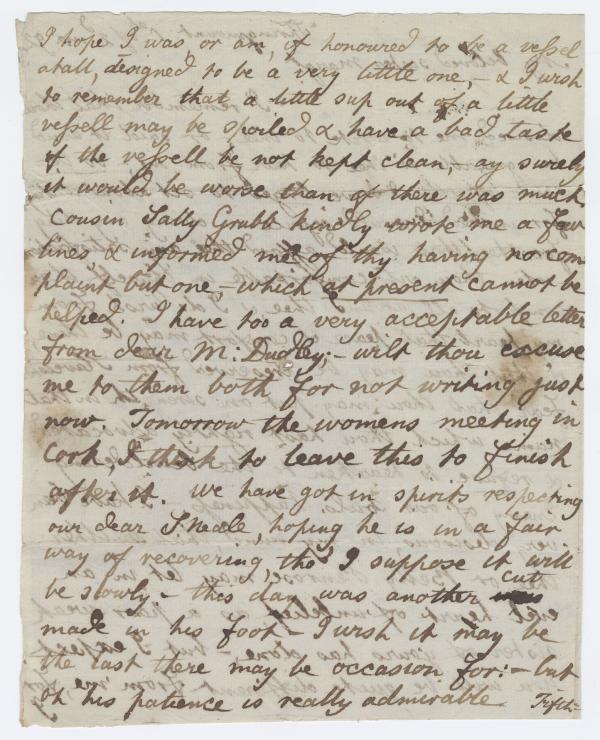 I hope I was, or am, if honoured to be a vessel
atall, designed to be a very little one, - & I wish
to remember that a little sup out of a little
vessell may be spoiled & have a bad taste
if the vessell be not kept clean, - ay surely
it would be worse than if there was much,
Cousin Sally Grubb kindly wrote me a few
lines & informed me of thy having no com
plaint but one, - which at present cannot be
helped. I have too a very acceptable letter
from dear M: Dudley; - wilt thou excuse
me to them both for not writing just
now. Tomorrow the womens meeting in
Cork, I think to leave this to finish
after it. We have got in spirits respecting
our dear S Neale, hoping he is in a fair
way of recovering, tho' I suppose it will
be slowly - this day was another cut
made in his foot - I wish it may be
the last there may be occasion for: - but
oh his patience is really admirable. Fifth=